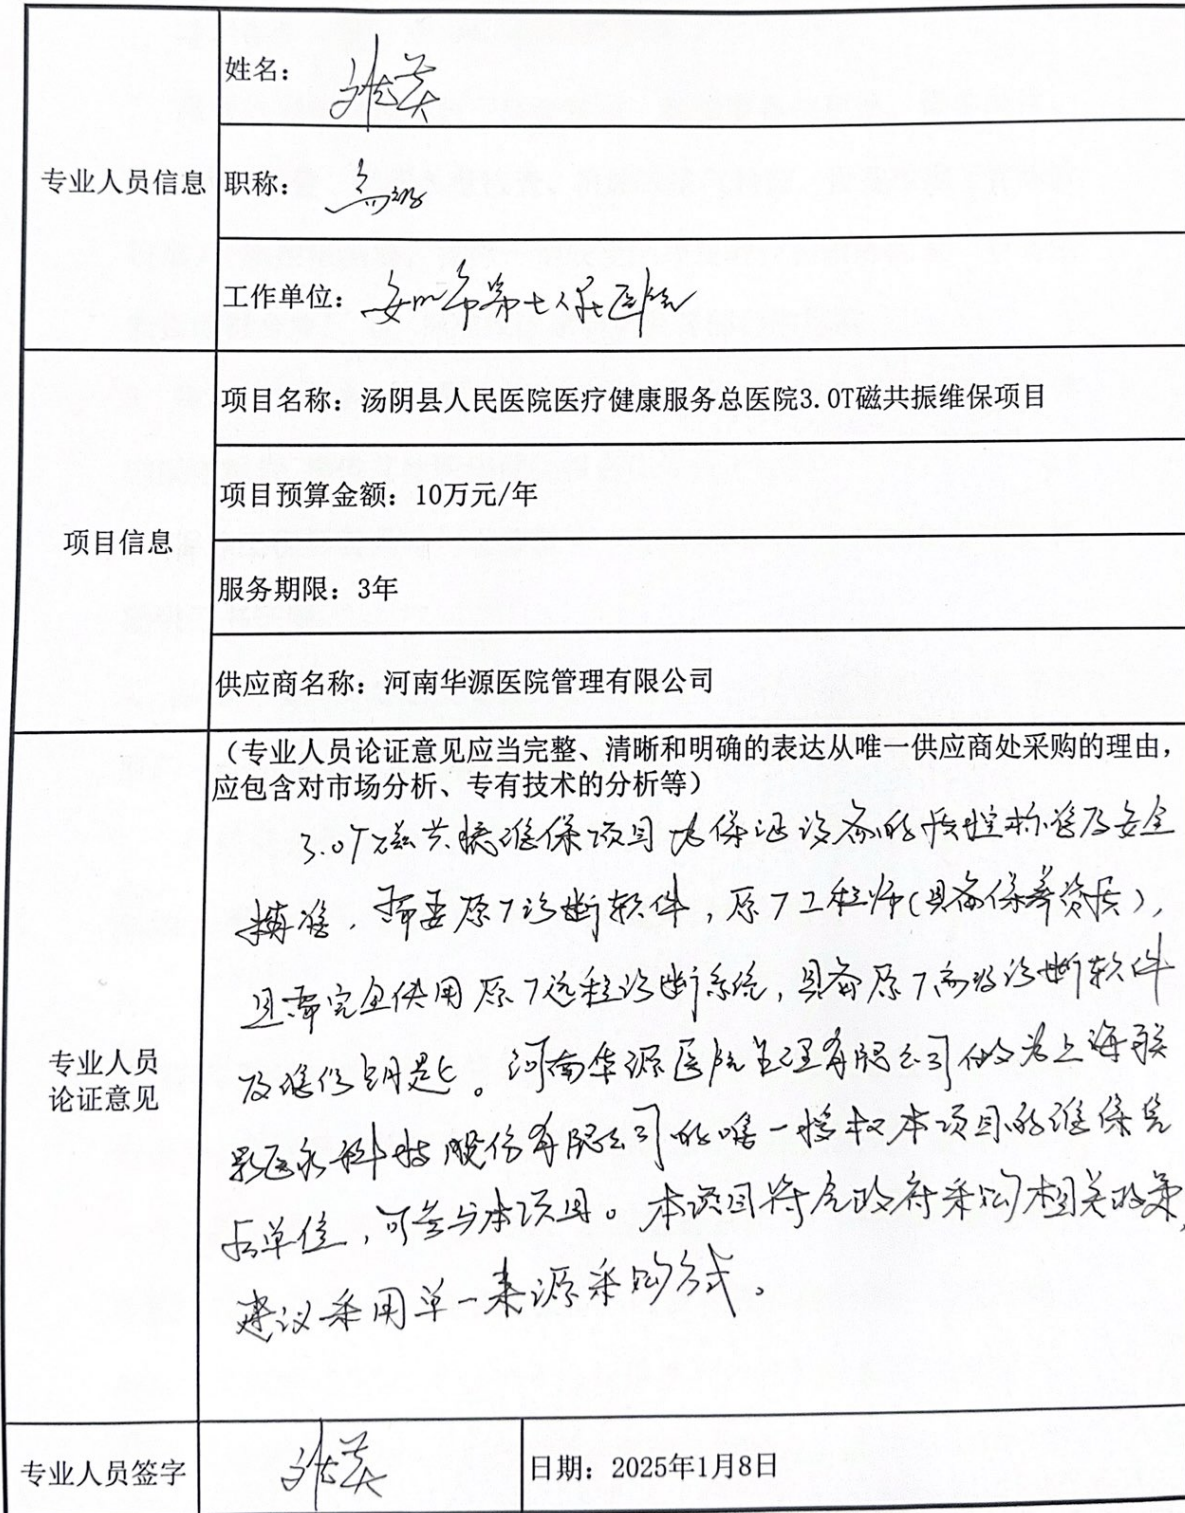 专业人员信息
姓名：
职称：高级
工作单位：安阳市第七人民医院
项目信息
项目名称：汤阴县人民医院医疗健康服务总医院3.0T磁共振维保项目
项目预算金额：10万元/年
服务期限：3年
供应商名称：河南华源医院管理有限公司
专业人员
论证意见
（专业人员论证意见应当完整、清晰和明确的表达从唯一供应商处采购的理由，
应包含对市场分析、专有技术的分析等）
3.0T磁共振维保项目为保证设备的质控标准及安全
标准，需要原厂诊断软件，原厂工程师（具备保养资质），
且需完全使用原厂远程诊断系统，具备原厂高级诊断软件
及维修钥匙。河南华源医院管理有限公司做为上海联
影医疗科技股份有限公司的唯一授权本项目的维保售
后单位，可参与本项目。本项目符合政府采购相关政策，
建议采用单一来源采购方式。
专业人员签字
日期：2025年1月8日